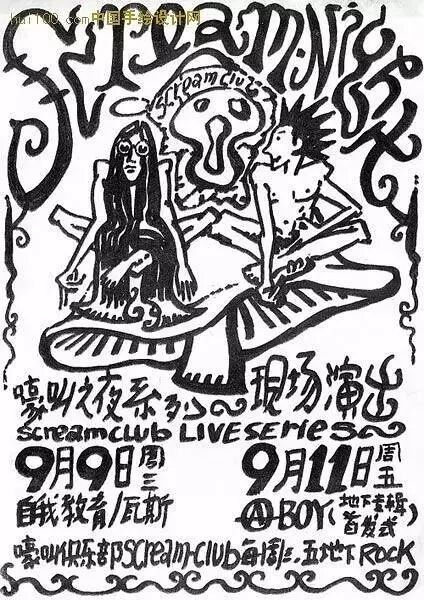 hui100.com中国手绘设计网
Scream.Night
Screamclub
嚎叫之夜系列~现场演出
screamclub LIVE SERIES~
9月9日周三 9月11日周五
自我教育/瓦斯 Ⓐ-BOY(地下专辑首发式)
嚎叫俱乐部Scream-club每周三.五地下ROCK